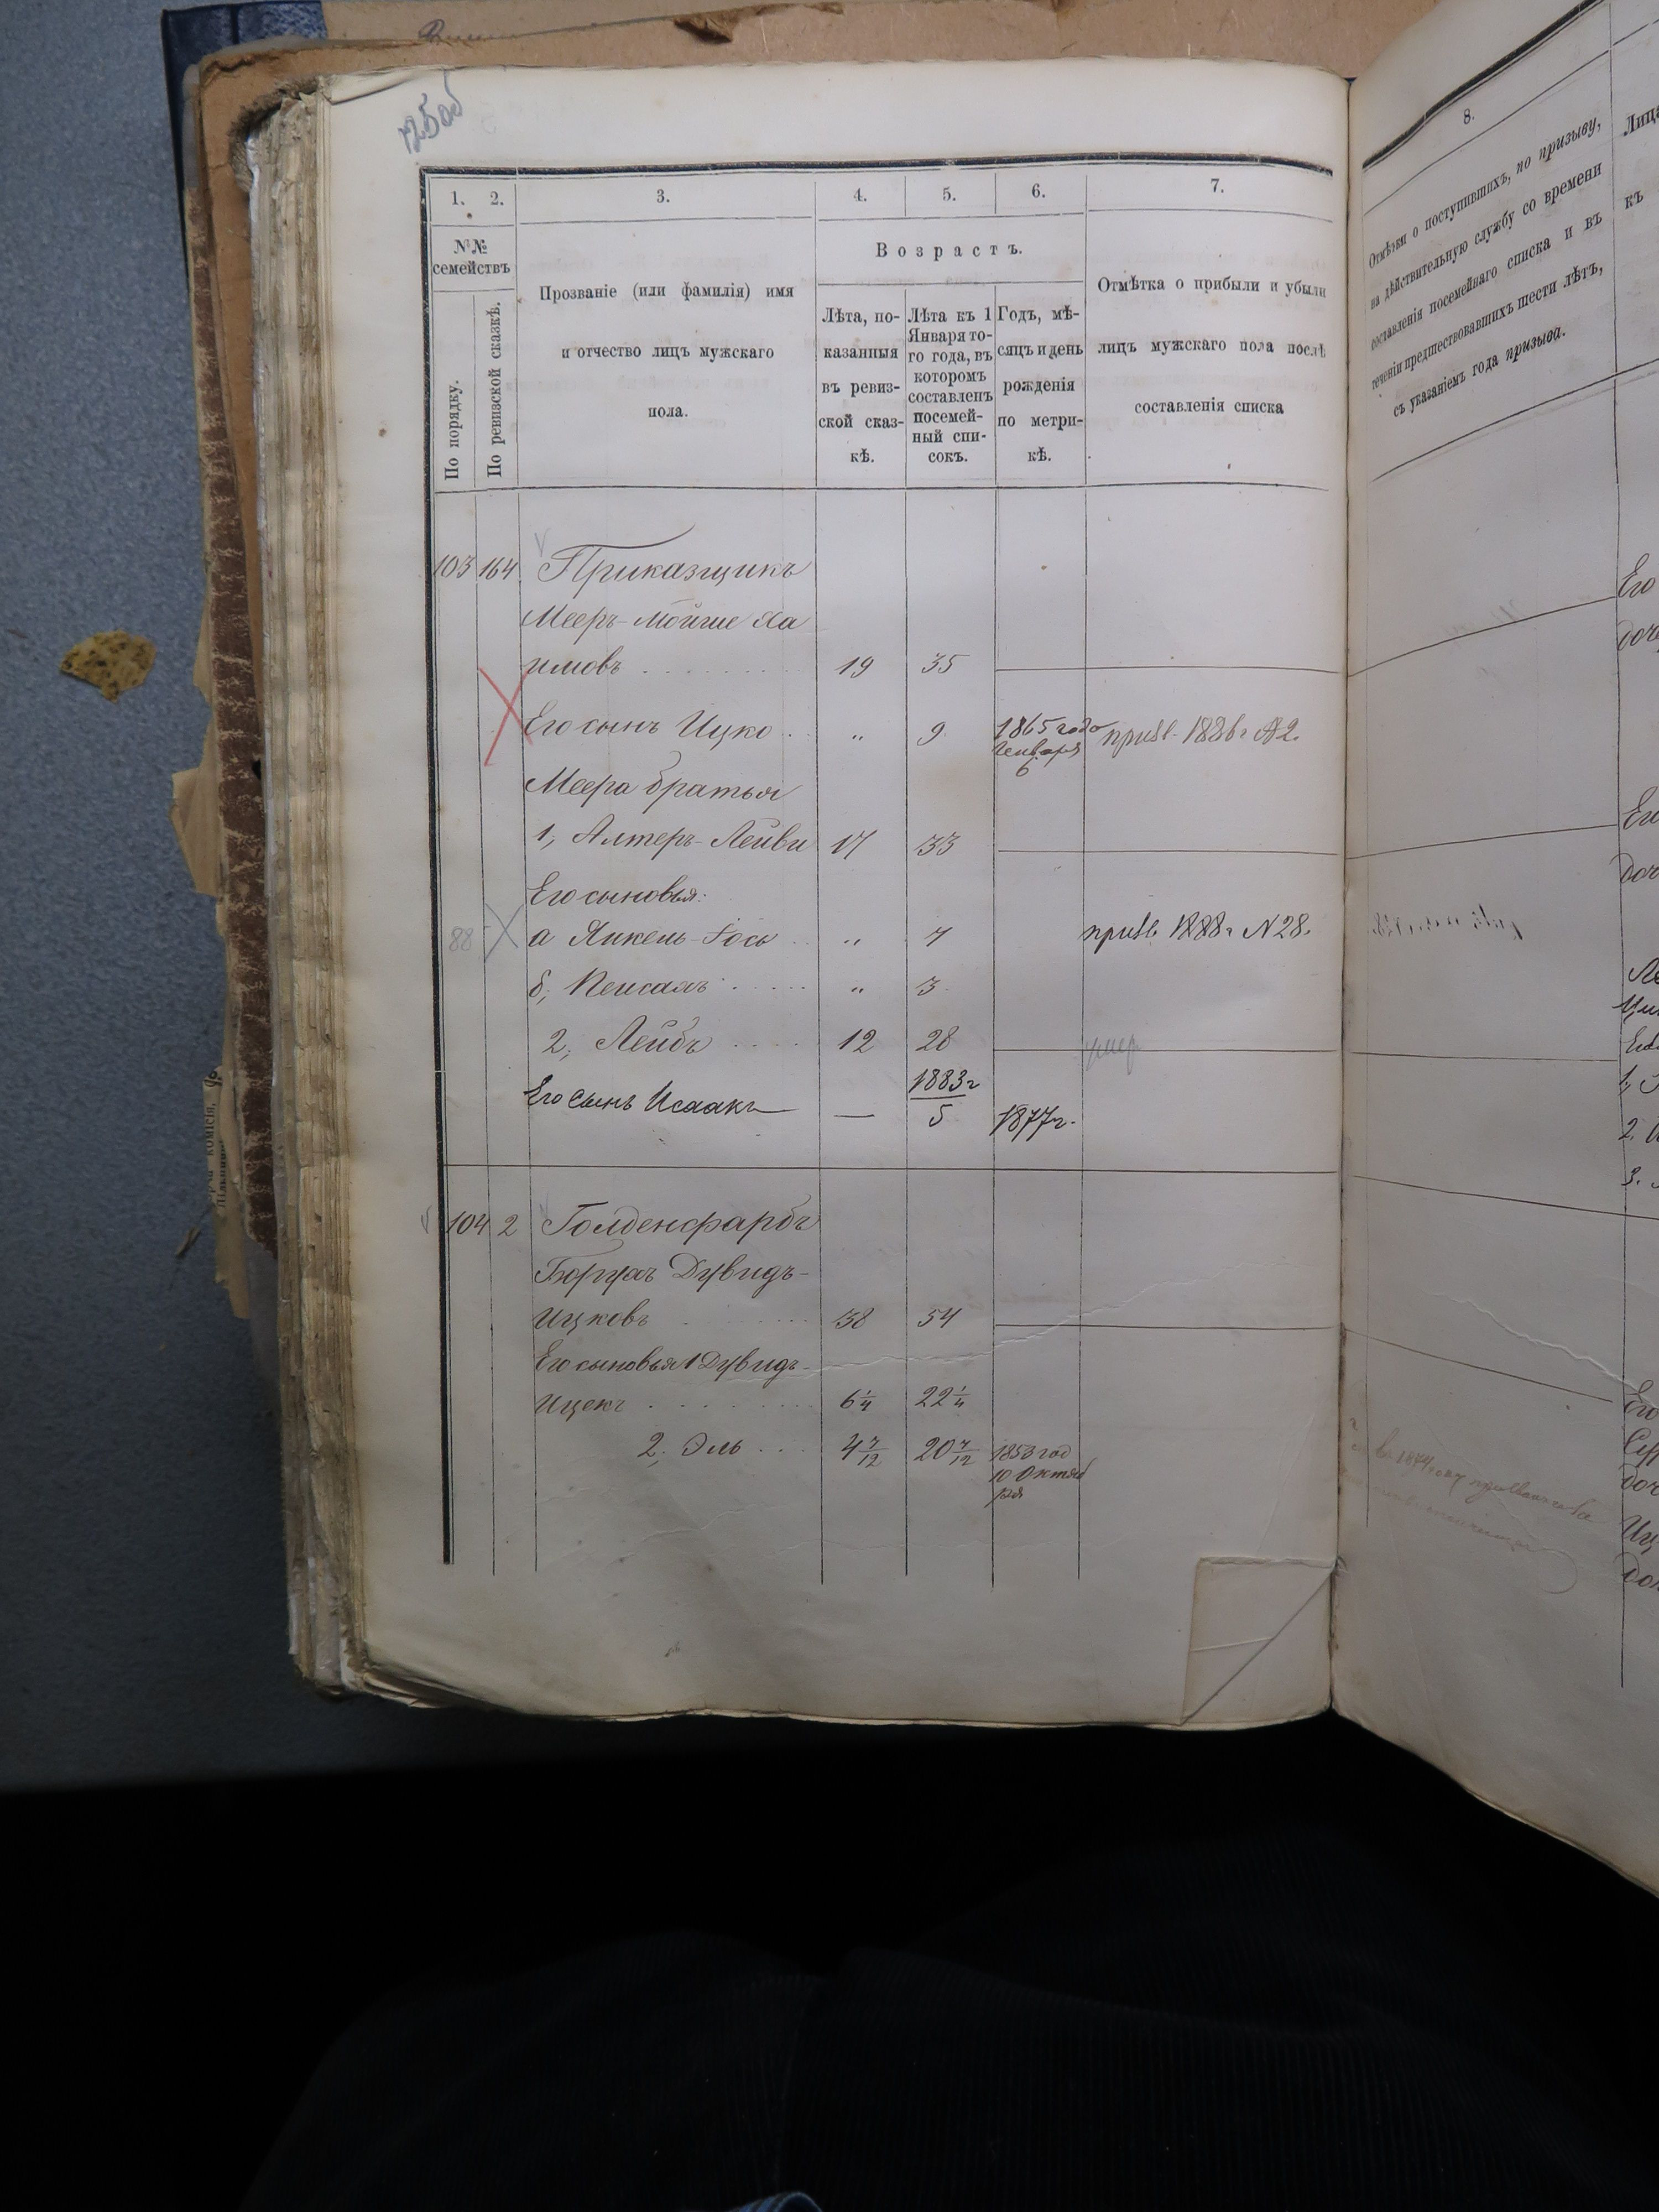 125об
1. 2. 3. 4. 5. 6. 7.
№№
семействъ
По порядку.
По ревизской сказкѣ.
Прозваніе (или фамилія) имя
и отчество лицъ мужскаго
пола.
Возрастъ.
Лѣта, по-
казанныя
въ ревиз-
ской сказ-
кѣ.
Лѣта къ 1
Января то-
го года, въ
которомъ
составленъ
посемей-
ный спи-
сокъ.
Годъ, мѣ-
сяцъ и день
рожденія
по метри-
кѣ.
Отмѣтка о прибыли и убыли
лицъ мужскаго пола послѣ
составленія списка
103 164 Приказщикъ
Мееръ-Мойше Ха
имовъ 19 35
Его сынъ Ицко „ 9 1865 года
Генваря
6
призв. 1886 г №2.
Меера братья
1, Алтеръ-Лейви 17 33
Его сыновья:
88 а Янкель-Іось „ 7 призв 1888 г N 28.
б, Пейсахъ „ 3
2, Лейбъ 12 28 умер
Его сынъ Исаакъ — 1883 г
5 1877 г.
104 2 Голденфарбъ
Борухъ Дувидъ-
Ицковъ 38 54
Его сыновья 1 Дувидъ-
Ицекъ 6 1/4 22 1/4
2, Эль 4 7/12 20 7/12 1853 год
10 Октяб
ря
8.
Отмѣтки о поступившихъ, по призыву,
на дѣйствительную службу со времени
составленія посемейнаго списка и въ
теченіи предшествовавшихъ шести лѣтъ,
съ указаніемъ года призыва.
Лица
къ
Его
доч
Его
доч
1,
2.
3.
Его
доч
доч